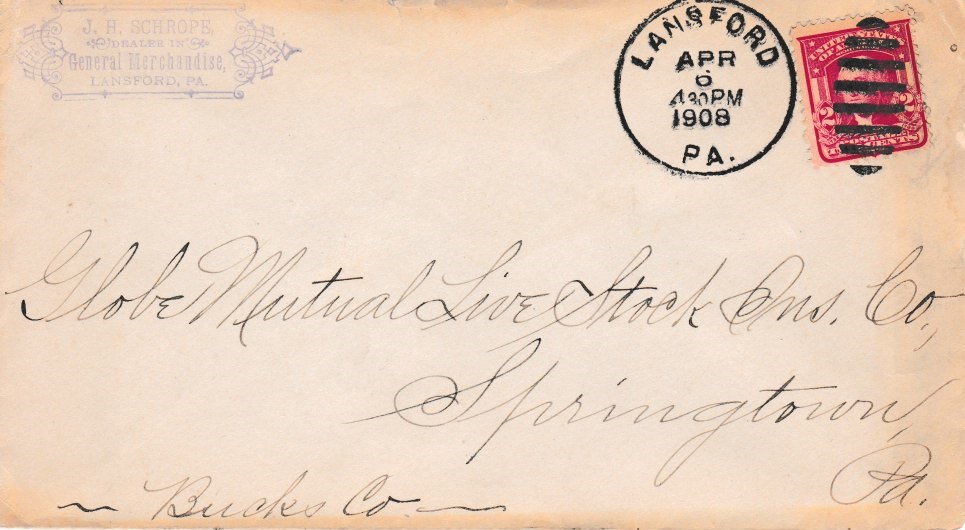 J. H. SCHROPE,
DEALER IN
General Merchandise,
LANSFORD, PA.
LANSFORD
APR
6
4 30 PM
1908
PA.
2 2
Globe Mutual Live Stock Ins. Co.,
Springtown,
Pa.
~ Bucks Co. ~